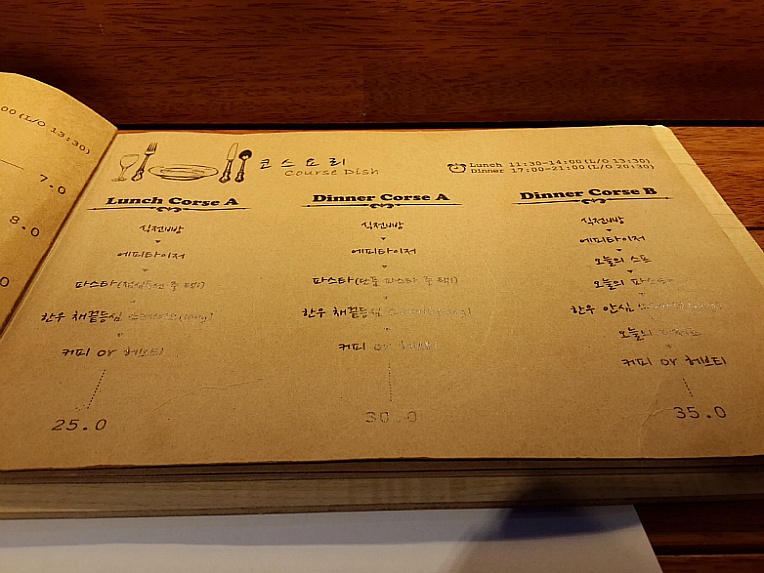 00(L/O 13:30)
7.0
8.0
0
코스요리
Course Dish
Lunch 11:30-14:00(L/O 13:30)
Dinner 17:00-21:00(L/O 20:30)
Lunch Corse A
식전빵
에피타이저
파스타(점심특선 중 택1)
한우 채끝등심
커피 or 허브티
25.0
Dinner Corse A
식전빵
에피타이저
파스타(단품 파스타 중 택1)
한우 채끝등심
커피 or 허브티
30.0
Dinner Corse B
식전빵
에피타이저
오늘의 스프
오늘의 파스타
한우 안심
오늘의
커피 or 허브티
35.0